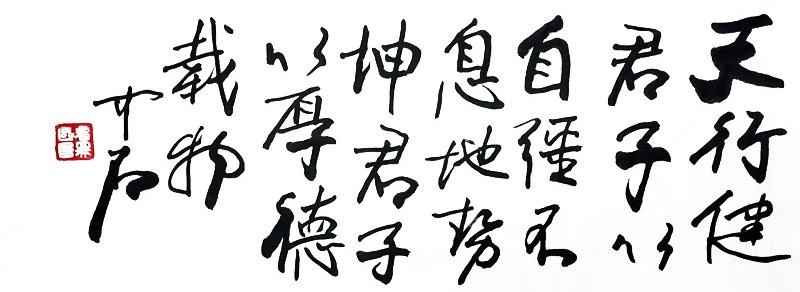 天行健
君子以
自彊不
息地势
坤君子
以厚德
載物
中石